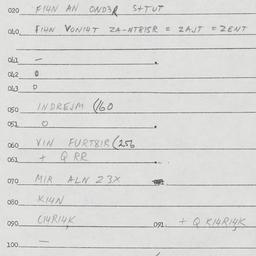 020 FI4N AN OND3R S+TUT
040 FI4N VONI4T ZA-NT8ISR = ZAJT = ZENT
041 —
042 0
043 D
050 INDREJM (160
051 O
060 VIN FURT8IR (256
061 + Q RR
070 MIR ALN 23X
080 KI4N
090 CI4RI4K 091 + Q KI4RI4K
100 —